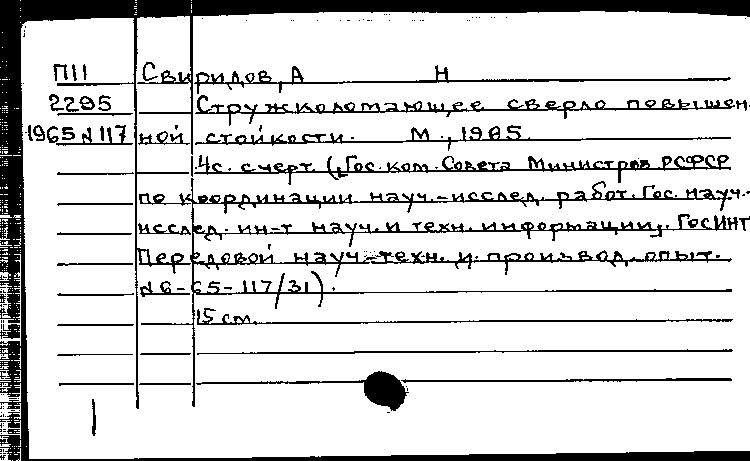 П11 Свиридов, А Н
2295 Стружколомающее сверло повышен-
1965 №117 ной стойкости. М., 1965.
4с. с черт. (Гос. ком. Совета Министров РСФСР
по координации науч.-исслед. работ. Гос. науч.-
исслед. ин-т науч. и техн. информации. ГОСИНТИ
Передовой науч.-техн. и производ. опыт.
№6-65-117/31).
15 см.